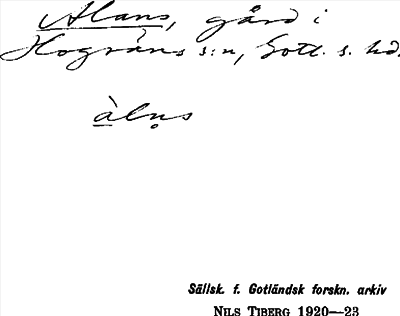 Alans, gård i
Hogräns s:n, Gotl. s. hd.
àlṇs
Sällsk. f. Gotländsk forskn. arkiv
NILS TIBERG 1920—23